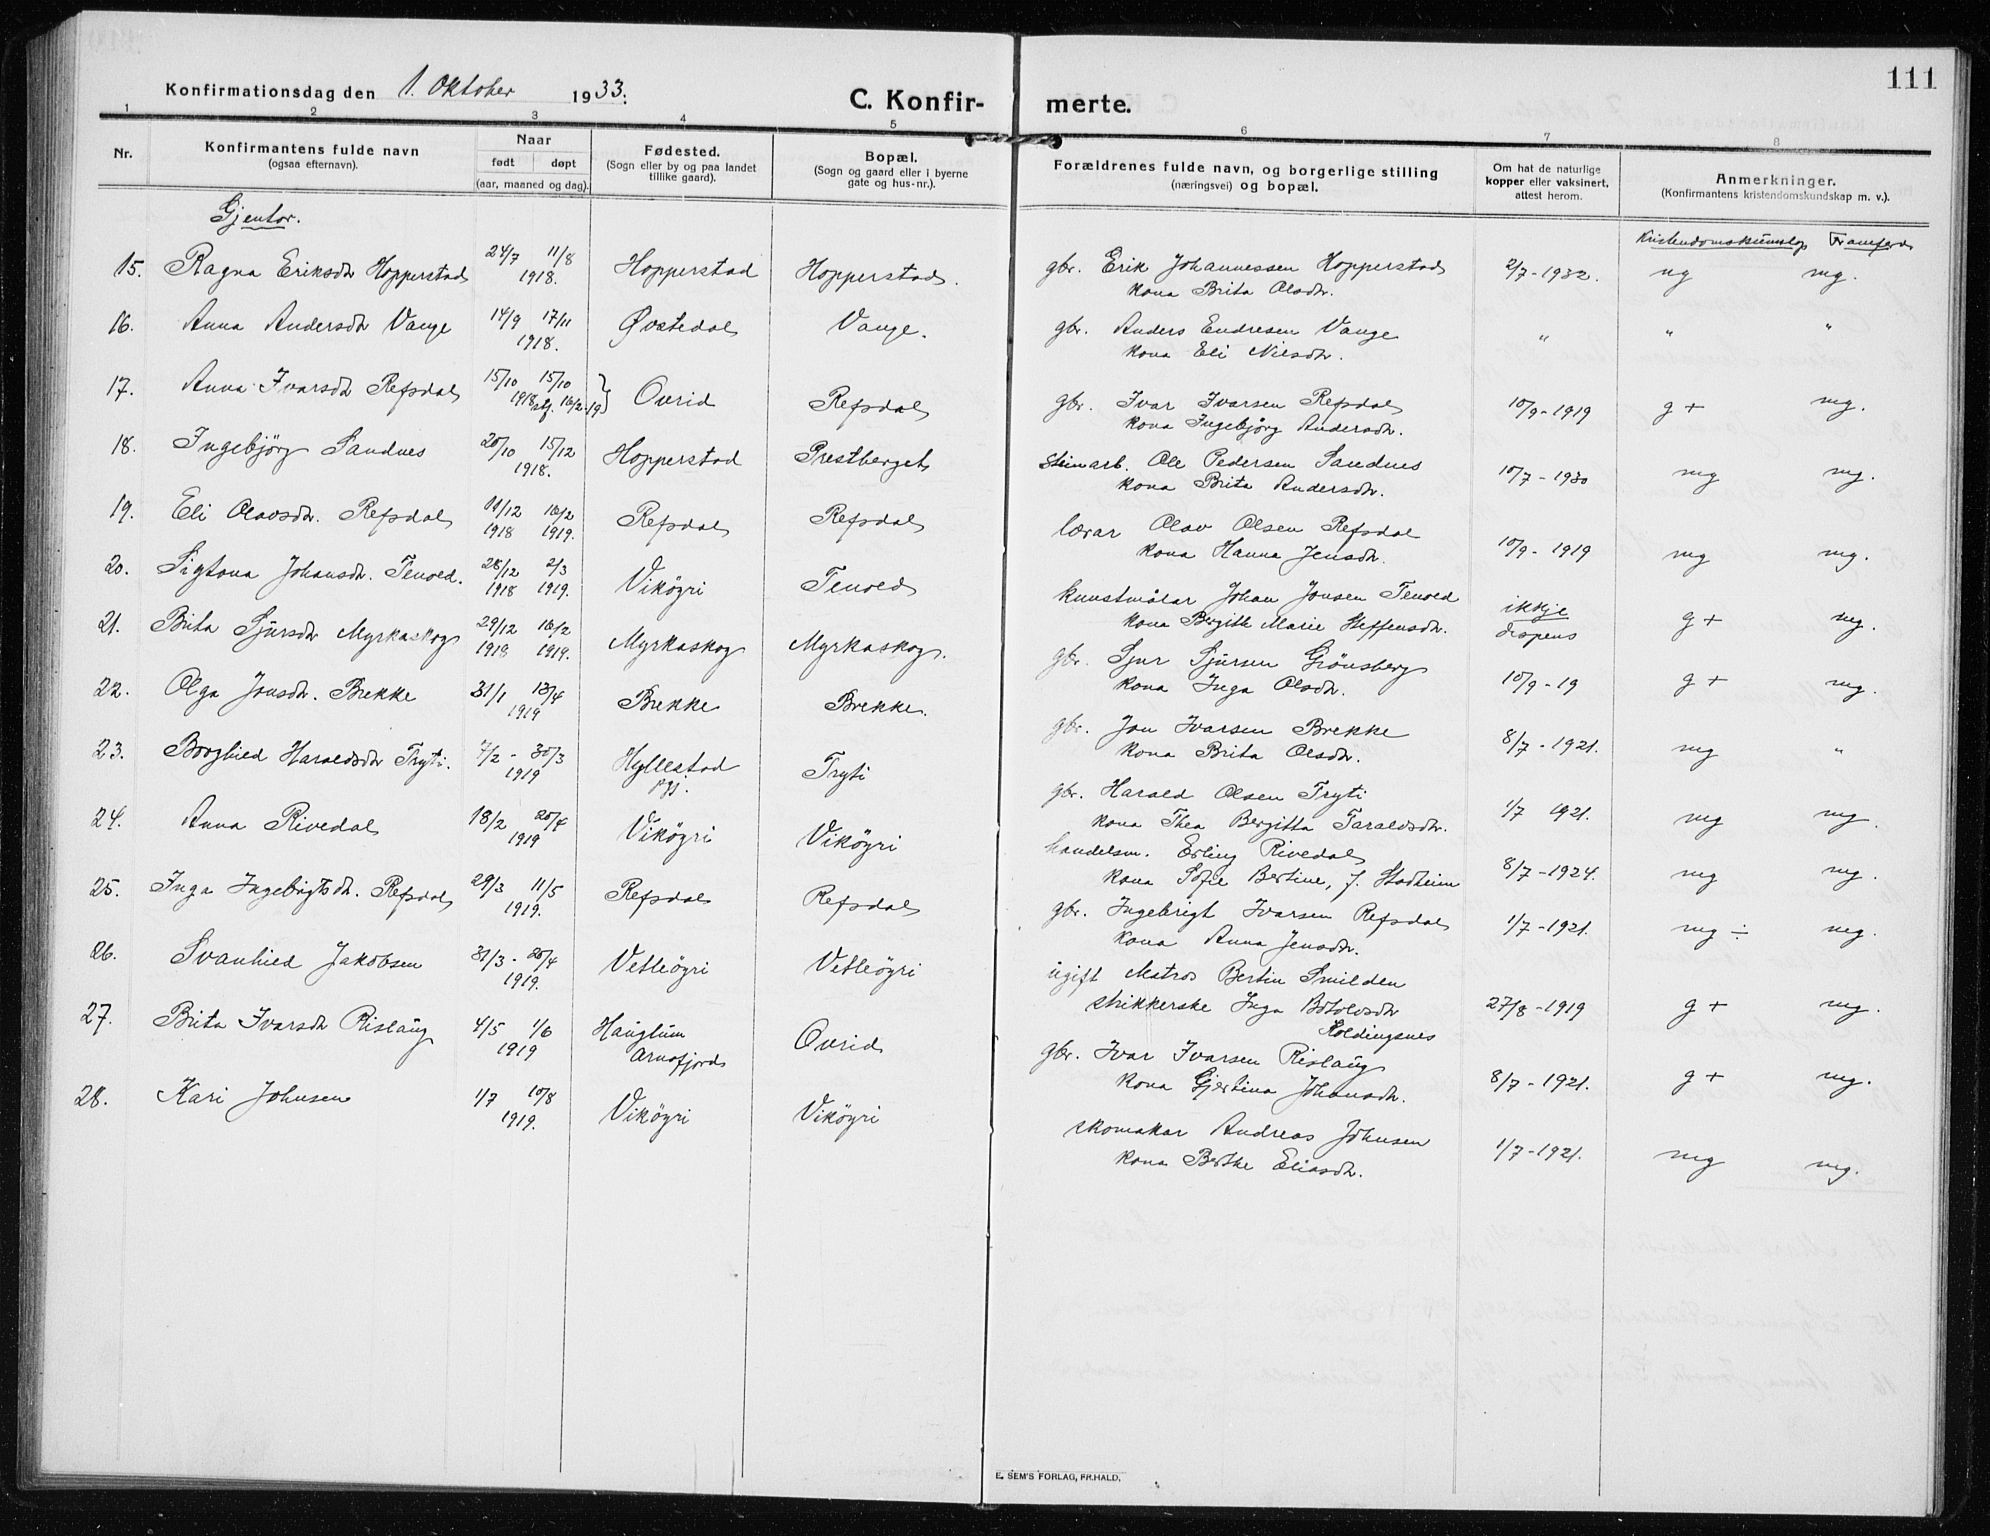 111
Konfirmationsdag den 1. Oktober 1933.
C. Konfir- merte.
1 2 3 4 5 6 7 8
Nr.
Konfirmantens fulde navn
(ogsaa efternavn).
Naar
født døpt
(aar, maaned og dag).
Fødested.
(Sogn eller by og paa landet
tillike gaard).
Bopæl.
(Sogn og gaard eller i byerne
gate og hus-nr.).
Forældrenes fulde navn, og borgerlige stilling
(næringsvei) og bopæl.
Om hat de naturlige
kopper eller vaksinert,
attest herom.
Anmerkninger.
(Konfirmantens kristendomskundskap m. v.).
Gjentor.
Kristendomskunnskp Framferd
15. Ragna Eriksdtr Hopperstad 24/7 11/8 Hopperstad Hopperstad. gbr. Erik Johannessen Hopperstad 2/7-1932. mg mg.
1918. kona Brita Olsdtr.
16. Anna Andersdtr Vange 14/9 17/11 Øvstedal Vange. gbr. Anders Endresen Vange " " "
1918. kona Eli Nilsdtr.
17. Anna Ivarsdtr Refsdal 15/10 15/10 Ovrid Refsdal gbr. Ivar Ivarsen Refsdal 10/9-1919 g+ mg.
1918 stf. 16/2-19 kona Ingebjörg Andersdtr.
18. Ingebjörg Sandnes 20/10 15/12 Hopperstad Prestberget Steinarb. Ole Pedersen Sandnes 10/7-1930 mg mg.
1918. kona Brita Andersdtr.
19. Eli Olavsdtr. Refsdal 11/12 16/2 Refsdal Refsdal lærar Olav Olsen Refsdal 10/9-1919 mg mg.
1918 1919. kona Hanna Jensdtr.
20. Sigtona Johansdtr. Tenoed. 28/12 2/3 Vikögri Tenoed kunstmålar Johan Jonsen Tenoed ikkje g+ mg.
1918 1919. kona Bergith Marie Steffensdtr. dispens
21. Brita Sjursdtr Myrkaskog 29/12 16/2 Myrkaskog Myrkaskog. gbr. Sjur Sjursen Grönsberg 10/9-19 g+ mg.
1918 1919. kona Inga Olsdtr.
22. Olga Jonsdtr. Brekke 31/1 13/4 Brekke Brekke. gbr. Jon Ivarsen Brekke 8/7-1921. mg "
1919 kona Brita Olsdtr.
23. Borghied Haraldsdtr Tryti. 7/2 - 30/3 Hyllestad Tryti gbr. Harald Olsen Tryti 1/7 1921. mg mg.
1919 pgj. kona Thea Bergitta Taraldsdtr.
24. Anna Rivedal 18/2 20/4 Vikögri Vikögri handelsm. Erling Rivedal 8/7-1924. mg mg.
1919 kona Sofie Bertine, f. Stadheim
25. Inga Ingebrigtsdtr. Refsdal 29/3 11/5 Refsdal Refsdal gbr. Ingebrigt Ivarsen Refsdal 1/7-1921. mg ÷ mg.
1919. kona Anna Jensdtr.
26. Svanhied Jakobsen 31/3 - 20/4 Vetleögri Vetleögri ugift Matros Bertin Smilden 27/8-1919 g+ mg.
1919. strikkerske Inga Botolvsdtr
Holdingsnes
27. Brita Ivarsdtr Rislaug 4/5 1/6 Hauglum Ovrid gbr. Ivar Ivarsen Rislaug 8/7-1921. g+ mg.
1919 Arnafjord kona Gjertina Johansdtr.
28. Kari Johnsen 1/7 10/8 Vikögri Vikögri skomakar Andreas Johnsen 1/7-1921. mg mg.
1919. kona Berthe Eliasdtr.
E. SEM'S FORLAG, FR.HALD.